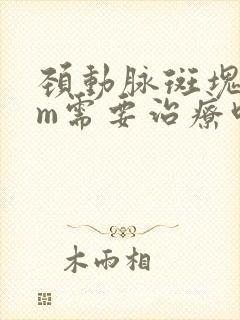 頚動脈斑塊
m需要治療
木雨相